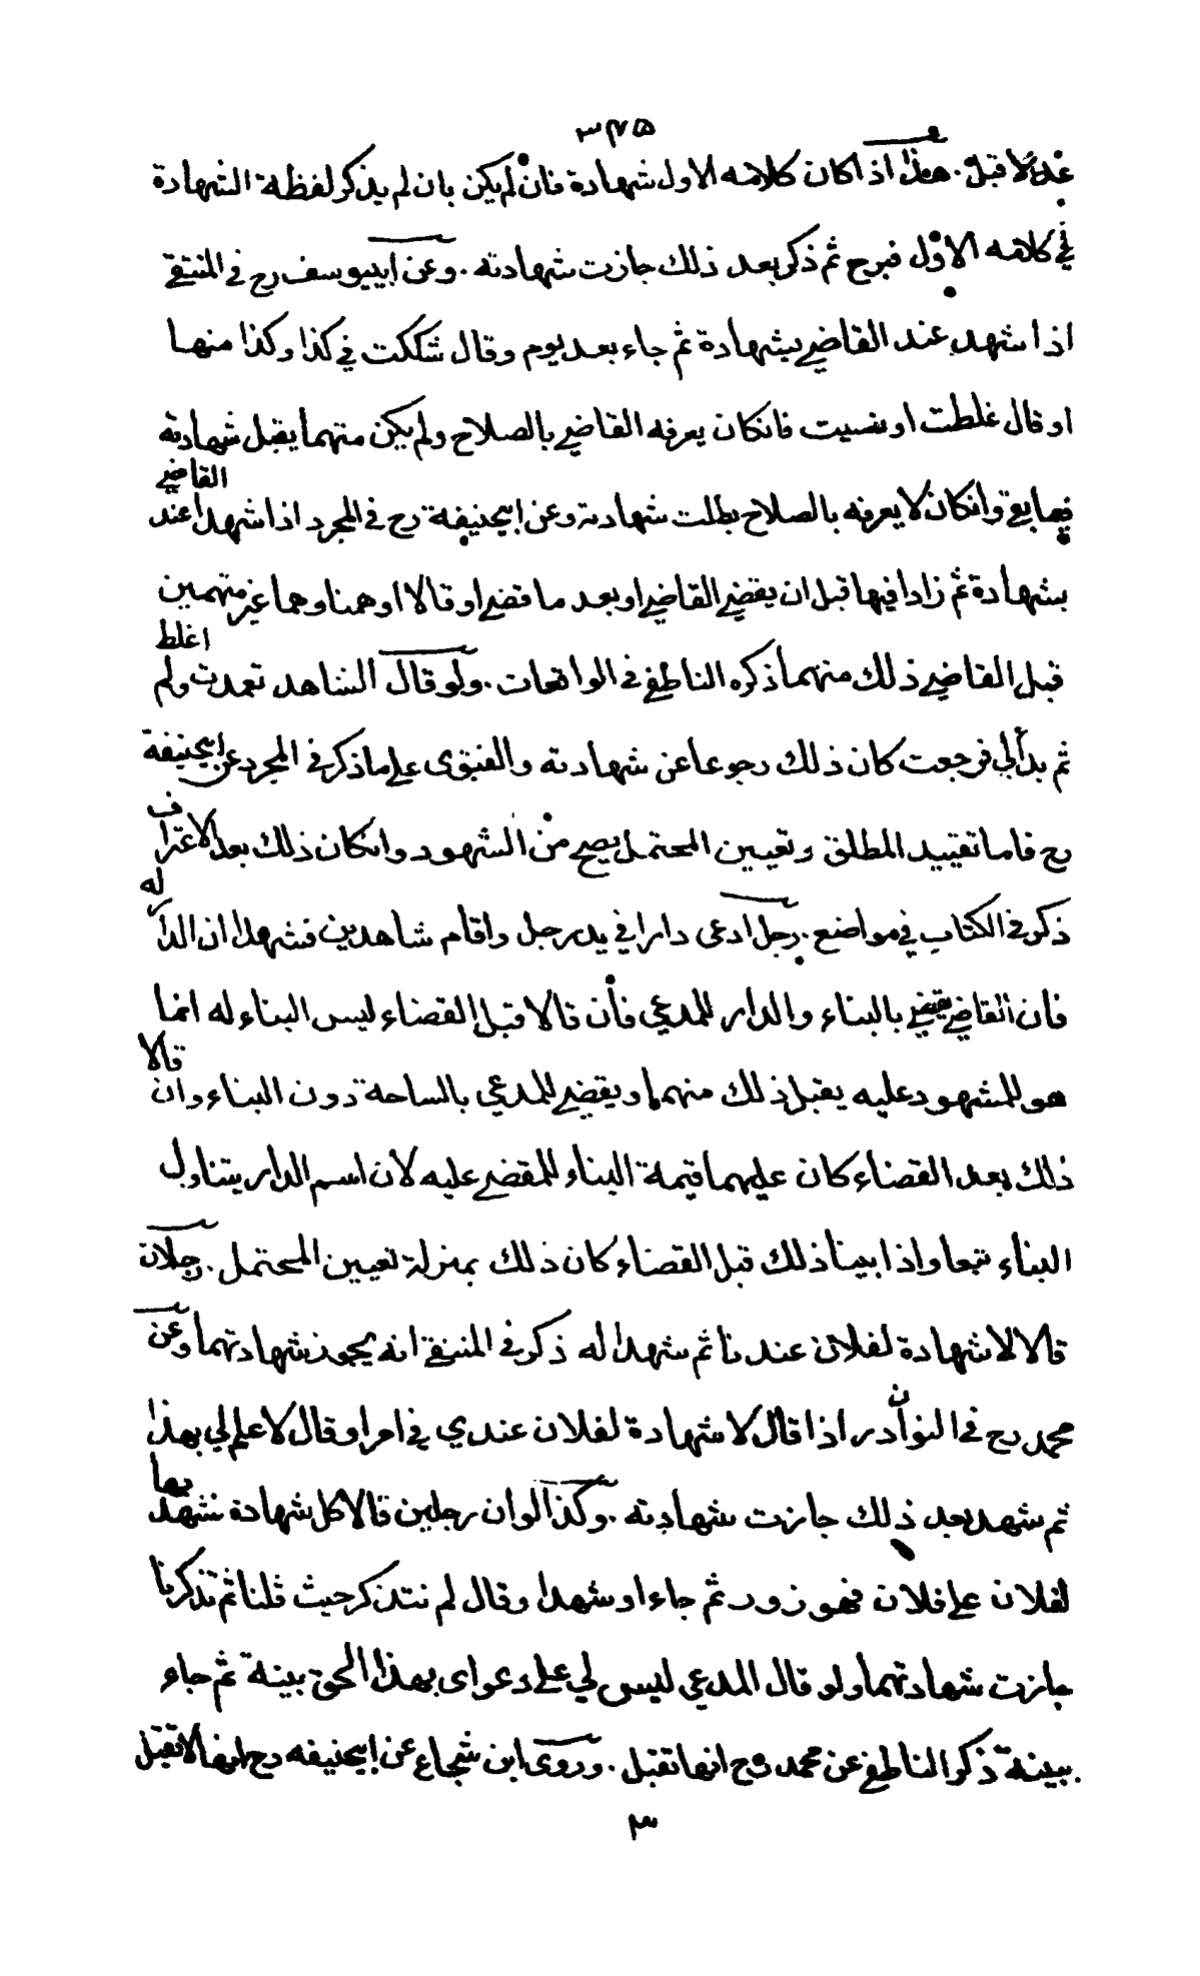 ٣٧٥
عدلا قبل. هذا اذا كان كلامه الاول شهادة فان لم يكن بان لم يذكر لفظة الشهادة
في كلامه الاول فبرح ثم ذكر بعد ذلك جازت شهادته. وعن ابييوسف رح في المنتقے
اذا شهد عند القاضے بشهادة ثم جاء بعد يوم وقال شككت في كذا وكذا منها
او قال غلطت او نسيت فانكان يعرفه القاضے بالصلاح ولم يكن متهما يقبل شهادته
فيما بقے وانكان لا يعرفه بالصلاح بطلت شهادته وعن ابيحنيفة رح في المجرد اذا شهدا عند القاضے
بشهادة ثم زادا فيها قبل ان يقضے القاضے او بعد ما قضے او قالا اوهمنا وهما غير متهمين
قبل القاضے ذلك منهما ذكره الناطفے في الواقعات. ولو قال الشاهد تعمدت ولم اغلط
ثم بدألي فرجعت كان ذلك رجوعا عن شهادته والفتوى علے ما ذكر في المجرد عن ابيحنيفة
رح فاما تقييد المطلق وتعيين المحتمل يصح من الشهود وانكان ذلك بعد الاعتراف
ذكر في الكتاب في مواضع. رجل ادعى دارا في يد رجل واقام شاهدين فشهدا ان الدار له
فان القاضے يقضے بالبناء والدار للمدعي فأن قالا قبل القضاء ليس البناء له انما
هو للمشهود عليه يقبل ذلك منهما ويقضے للمدعي بالساحة دون البناء وان قالا
ذلك بعد القضاء كان عليهما قيمة البناء للمقضے عليه لان اسم الدار يتناول
البناء تبعا واذا بينا ذلك قبل القضاء كان ذلك بمنزلة تعيين المحتمل. رجلان
قالا لا شهادة لفلان عندنا ثم شهدا له ذكر في المنتقے انه يجوز شهادتهما وعن
محمد رح في النوادر اذا قال لا شهادة لفلان عندي في امر او قال لا علم لي بهذا
ثم شهد بعد ذلك جازت شهادته. وكذا لو ان رجلين قالا كل شهادة نشهد بها
لفلان علے فلان فهو زور ثم جاءا وشهدا وقال لم نتذكر حيث قلنا ثم تذكرنا
جازت شهادتهما ولو قال المدعي ليس لي علے دعواى بهذا الحق بينة ثم جاء
ببينة ذكر الناطفے عن محمد رح انها تقبل. وروى ابن شجاع عن ابيحنيفه رح انها لا تقبل
٣